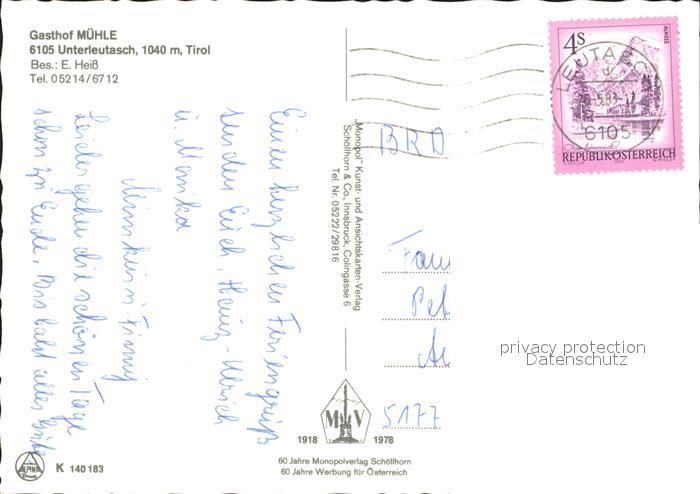 Gasthof MÜHLE
6105 Unterleutasch, 1040 m, Tirol
Bes.: E. Heiß
Tel. 05214/6712
Einen herzlichen Feriengruß
senden Euch, Heinz-Ulrich
u. Monika
Leider gehen die schönen Tage
schon zu Ende. Bis bald alles Gute
"Monopol" Kunst- und Ansichtskarten-Verlag
Schöllhorn & Co., Innsbruck, Colingasse 6
Tel. Nr. 05222/29816
BRD
Fam
Pet
5177
4S
ALMSEE
REPUBLIK ÖSTERREICH
LEUTASCH
6105
privacy protection
Datenschutz
M V
1918 1978
60 Jahre Monopolverlag Schöllhorn
60 Jahre Werbung für Österreich
ALPINA
K 140 183